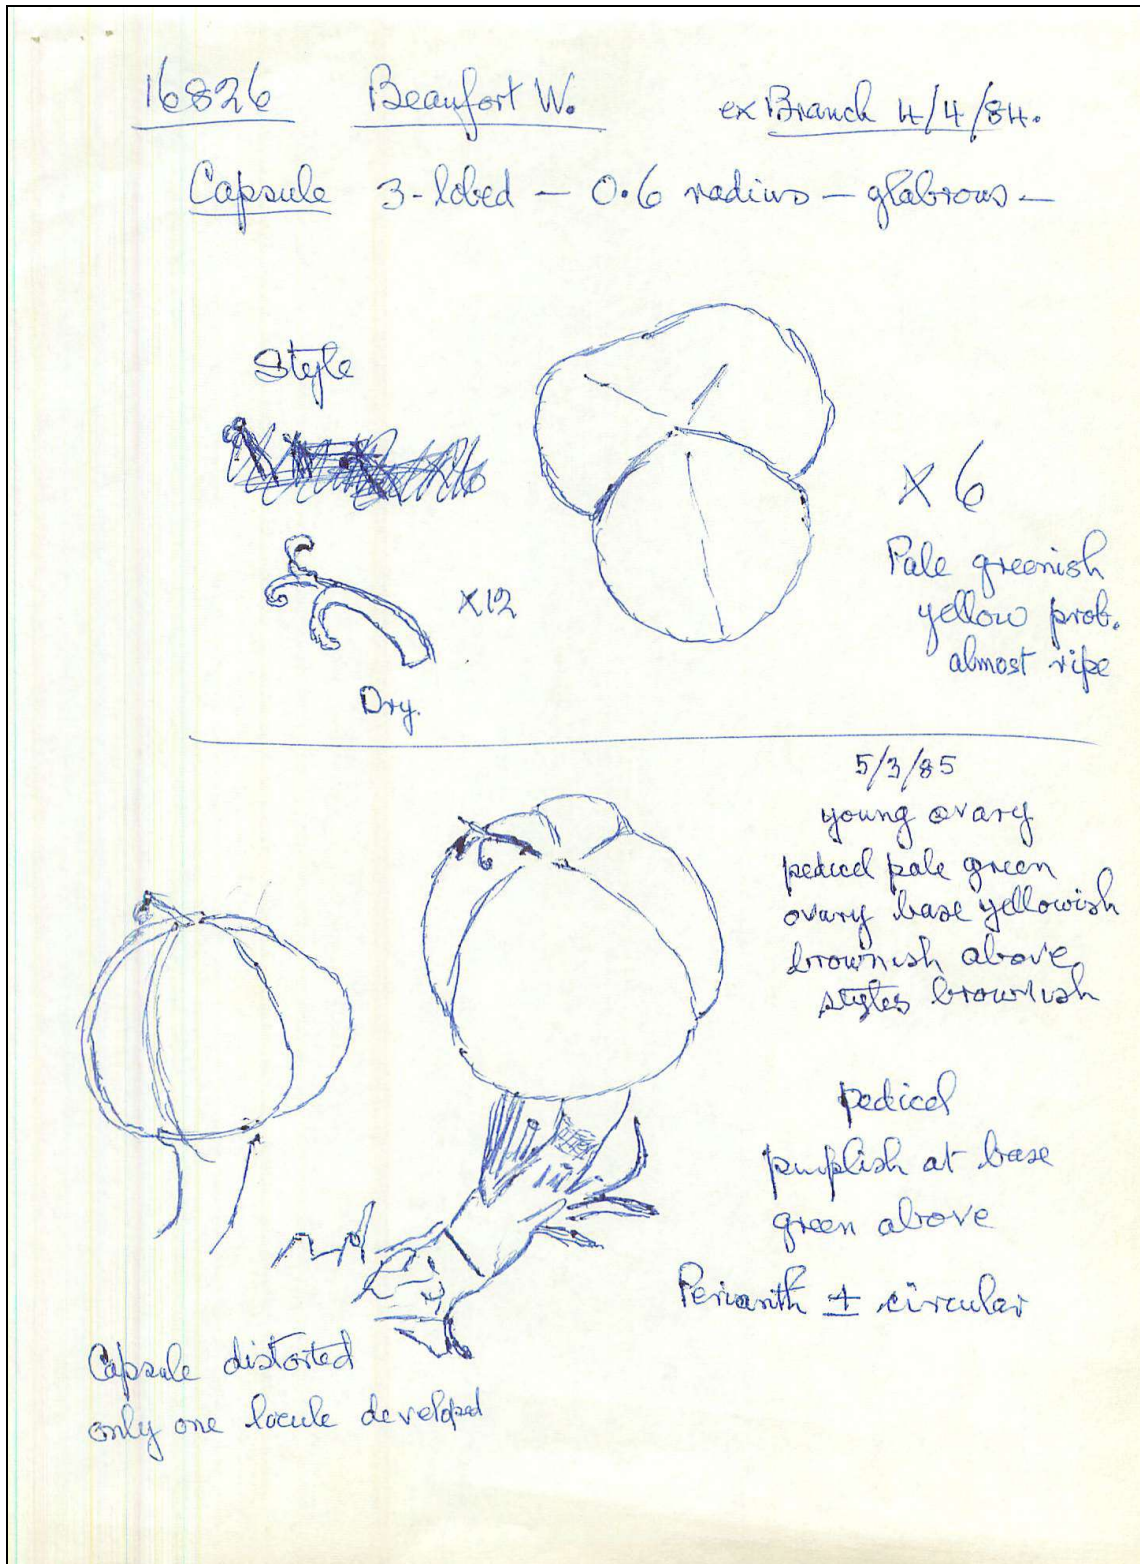 16826 Beaufort W. ex Branch 4/4/84.
Capsule 3-lobed — 0.6 radius — glabrous —
Style
X 6
Pale greenish
yellow prob.
almost ripe
X12
Dry.
5/3/85
young ovary
pedicel pale green
ovary base yellowish
brownish above
styles brownish
pedicel
purplish at base
green above
Perianth ± circular
Capsule distorted
only one locule developed